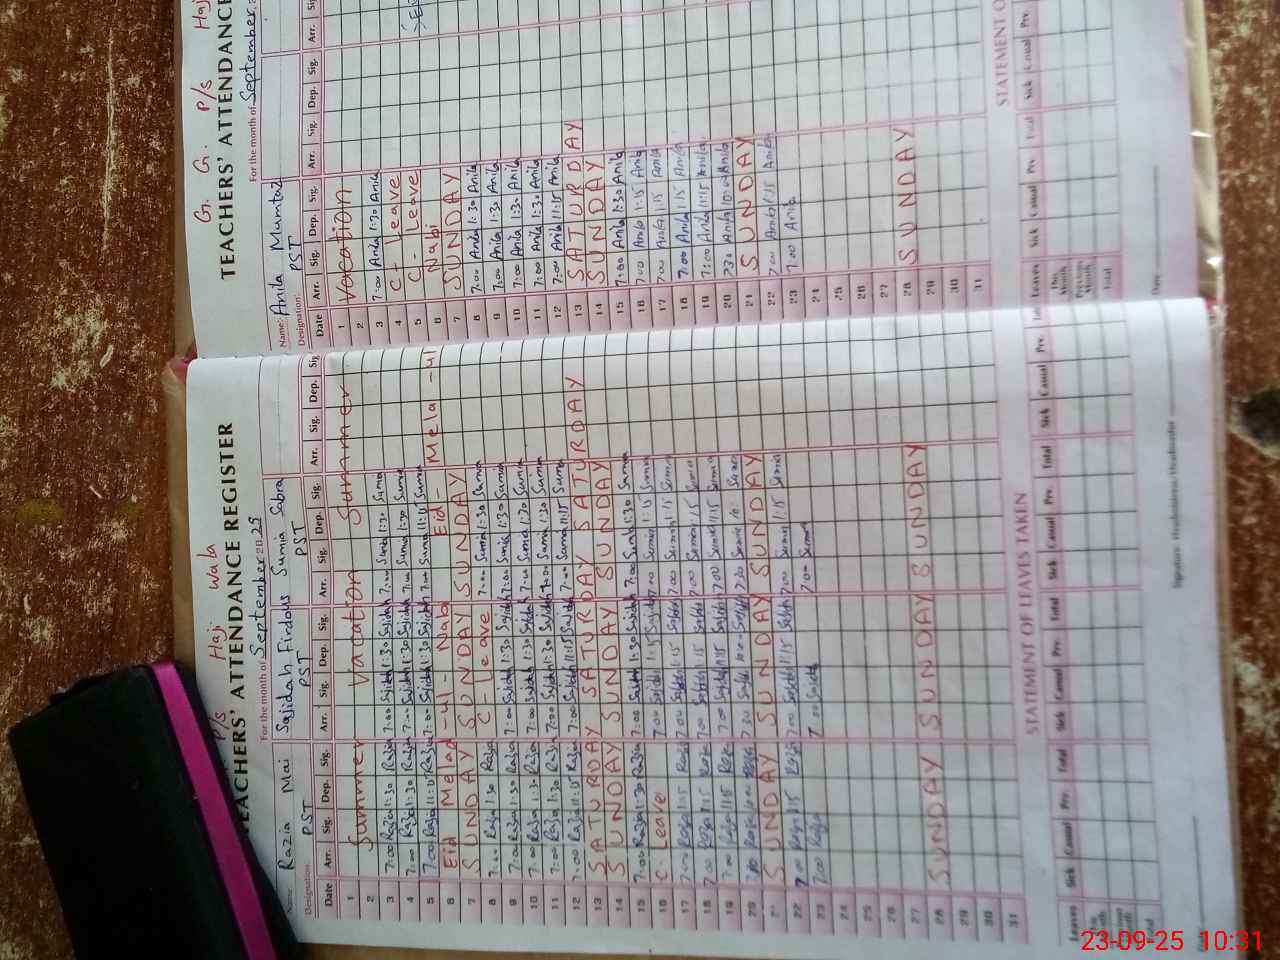 P/S Haji Wala
TEACHERS' ATTENDANCE REGISTER
For the month of September 2025
Name: Razia Mai Sajidah Firdous Sumia Sobra
Designation: PST PST PST
Date Arr. Sig. Dep. Sig. Arr. Sig. Dep. Sig. Arr. Sig. Dep. Sig. Arr. Sig. Dep. Sig.
1 Summer Vacation Summer
2
3 7:00 Razia 1:30 Razia 7:00 Sajidah 1:30 Sajidah 7:00 Sumia 1:30 Sumia
4 7:00 Razia 1:30 Razia 7:00 Sajidah 1:30 Sajidah 7:00 Sumia 1:30 Sumia
5 7:00 Razia 11:15 Razia 7:00 Sajidah 1:30 Sajidah 7:00 Sumia 11:15 Sumia
6 Eid Melad -ul- Nabi Eid- Mela -ul
7 SUNDAY SUNDAY SUNDAY
8 7:00 Razia 1:30 Razia C-Leave 7:00 Sumia 1:30 Sumia
9 7:00 Razia 1:30 Razia 7:00 Sajidah 1:30 Sajidah 7:00 Sumia 1:30 Sumia
10 7:00 Razia 1:30 Razia 7:00 Sajidah 1:30 Sajidah 7:00 Sumia 1:30 Sumia
11 7:00 Razia 1:30 Razia 7:00 Sajidah 1:30 Sajidah 7:00 Sumia 1:30 Sumia
12 7:00 Razia 11:15 Razia 7:00 Sajidah 11:15 Sajidah 7:00 Sumia 11:15 Sumia
13 SATURDAY SATURDAY SATURDAY
14 SUNDAY SUNDAY SUNDAY
15 7:00 Razia 1:30 Razia 7:00 Sajidah 1:30 Sajidah 7:00 Sumia 1:30 Sumia
16 C-Leave 7:00 Sajidah 1:15 Sajidah 7:00 Sumia 1:15 Sumia
17 7:00 Razia 1:15 Razia 7:00 Sajidah 1:15 Sajidah 7:00 Sumia 1:15 Sumia
18 7:00 Razia 1:15 Razia 7:00 Sajidah 1:15 Sajidah 7:00 Sumia 1:15 Sumia
19 7:00 Razia 11:15 Razia 7:00 Sajidah 11:15 Sajidah 7:00 Sumia 11:15 Sumia
20 Razia Razia 7:30 Sajidah 10:00 Sajidah 7:30 Sumia Sumia
21 SUNDAY SUNDAY SUNDAY
22 7:00 Razia 1:15 Razia 7:00 Sajidah 1:15 Sajidah 7:00 Sumia 1:15 Sumia
23 7:00 Razia 7:00 Sajidah 7:00 Sumia
24
25
26
27
28 SUNDAY SUNDAY SUNDAY
29
30
31
STATEMENT OF LEAVES TAKEN
Leaves Sick Casual Prv. Total Sick Casual Prv. Total Sick Casual Prv. Total Sick Casual Prv.
Total
Date
Signature Headmistress/Headmaster
G. G. P/S Haj
TEACHERS' ATTENDANCE
For the month of September
Name: Anila Mumtaz
Designation: PST
Date Arr. Sig. Dep. Sig. Arr. Sig. Dep. Sig. Arr.
1 Vacation
2
3 7:00 Anila 1:30 Anila
4 C-Leave
5 C-Leave
6 Nabi
7 SUNDAY
8 7:00 Anila 1:30 Anila
9 7:00 Anila 1:30 Anila
10 7:00 Anila 1:30 Anila
11 7:00 Anila 1:30 Anila
12 7:00 Anila 11:15 Anila
13 SATURDAY
14 SUNDAY
15 7:00 Anila 1:30 Anila
16 7:00 Anila 1:15 Anila
17 7:00 Anila 1:15 Anila
18 7:00 Anila 1:15 Anila
19 7:00 Anila 11:15 Anila
20 7:30 Anila 10:00 Anila
21 SUNDAY
22 7:00 Anila 1:15 Anila
23 7:00 Anila
24
25
26
27
28 SUNDAY
29
30
31
STATEMENT O
Leaves Sick Casual Prv. Total Sick Casual Prv.
This Month
Previous Month
Total
Date
23-09-25 10:31